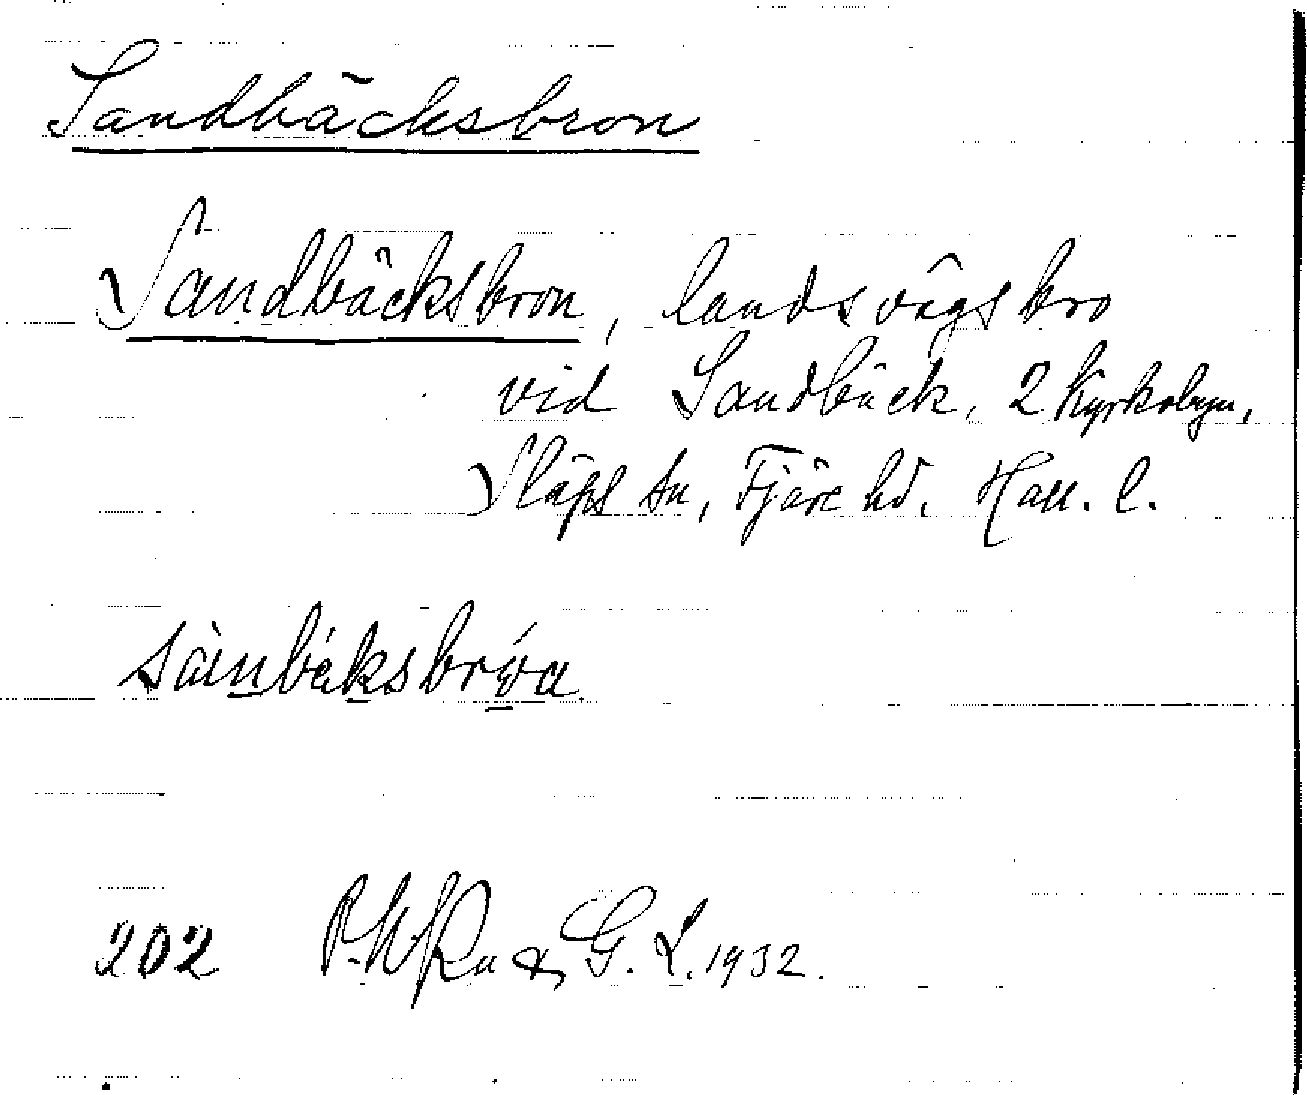 Sandbäcksbron
Sandbäcksbron, landsvägsbro
vid Sandbäck, 2 Kyrkobyn,
Släps sn, Fjäre hd. Hall. l.
202 G. L. 1932.